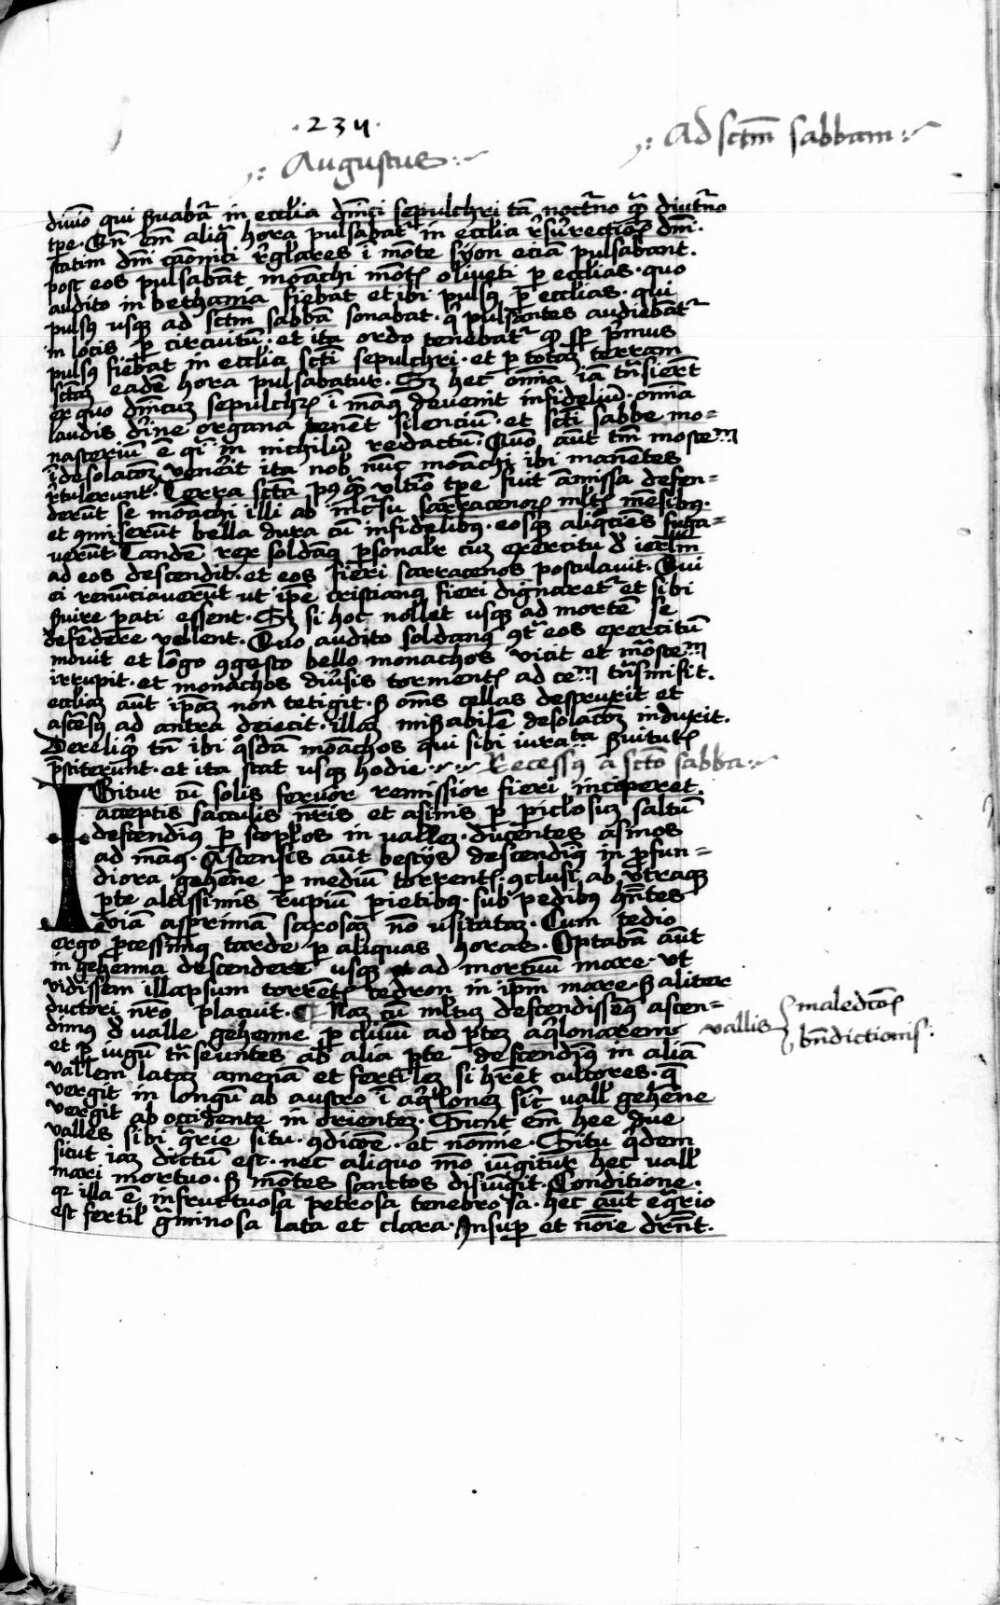 .234.
Ad sctm sabbam
Augustus
diuio qui suabar in ecclia dnici sepulchri tā nocturno qm diuturno
tpe. Cū em aliqua hora pulsabat in ecclia resurrectiōis dni.
statim dni canonici regulares ī mōte syon eciā pulsabant.
post eos pulsabāt monachi mōtis oliueti p ecclias. quo
audito in bethania fiebat et ibi pulsus p ecclias. qui
pulsus usque ad sctm sabbā sonabat. q pulsantes audiebāt
in locis p circuitū. et ita ordo tenebatur q sp prmus
pulsus fiebat in ecclia scti sepulchri. et p totam terram
sctam eadē hora pulsabatur. Sz hec omnia iā trsierūt
ex quo dnicum sepulchrū ī manus deuenit infideliū. omnia
laudis diuine organa tenēt silenciū. et scti sabbe mo=
nasteriū ē qsi in nichilum redactum. Quō aut tm monste
ī desolacōem venerit ita nob nūc monachi ibi manētes
retulerunt. Terra scta pq vltīo tpe fuit amissa defen=
derūt se mōachi illi ab incursu sarracenor mltis mēsibus.
et gmiserunt bella dura cū infidelibus. eosq aliqciens fuga=
uerūt. Tandē rex soldanus psonalr cum exercitu d iherlm
ad eos descendit. et eos fieri sarracenos postulauit. Qui
ei renūciauerūt ut ipe cristianus fieri dignaretr et sibi
suire pati essent. Sz si hoc nollet usque ad mortē se
defēdere vellent. Quo audito soldanus gtr eos exercitū
mouit et lōgo ggesto bello monachos vicit et mōste
irrupit. et monachos diuersis tormentis ad ce trsmisit.
eccliam aut ipam non tetigit. s oms cellas destruxit et
ascēsus ad antra deiecit. illam misabilē desolacōz induxit.
Dereliquit tn ibi qsdā mōachos qui sibi iurata seruitutis
pstiterunt. et ita stat usque hodie. Recessus a scto sabba.
IGitur cū solis feruor remissior fieri inciperet.
acceptis sacculis nris et asinis p piclosum saltum
descendimus p scopulos in vallem. ducentes asinos
ad manus. Ascensis aūt bestijs descendimus in pfun=
diora gehēne p mediū torrentis gclusi ab utraque
pte altissimis rupium parietibus. sub pedibus hntes
viam asprimā saxosam nō usitatam. Cum tedio
ergo pcessimus tarde p aliquas horas. Optabā aut
in gehenna descendere usque ad mortuū mare. ut
vidissem illapsum torretis cedron in ipm mare. s aliter
ductori nro placuit. Nam cū mltum descendissemus ascen=
dimus d valle gehenne p cliuū ad ptem aqlonarem.
vallis maledictōis
bndictionis.
et p iugū trseuntes ab alia pte descendimus in aliā
vallem latam amenā et fertilem si hret cultores. q
vergit in longū ab austro ī aqlonem sic vall gehenne
vergit ab occidente in orientem. Sunt em hee due
valles sibi grie situ. gdicōe. et nomie. Situ qdem
sicut iam dictum est. nec aliquo mō iūgitur hec vall
mari mortuo. s mōtes sanctos disiūgit. Conditione.
qr illa ē infructuosa petrosa tenebrosa. hec aut egrio
est fertil gminosa lata et clara. Insup et noīe drnt.